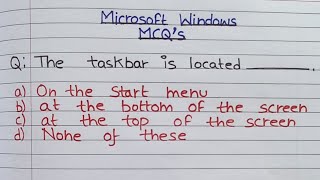 Microsoft Windows
MCQ's
Q: The taskbar is located ________.
a) On the Start menu
b) at the bottom of the screen
c) at the top of the screen
d) None of these